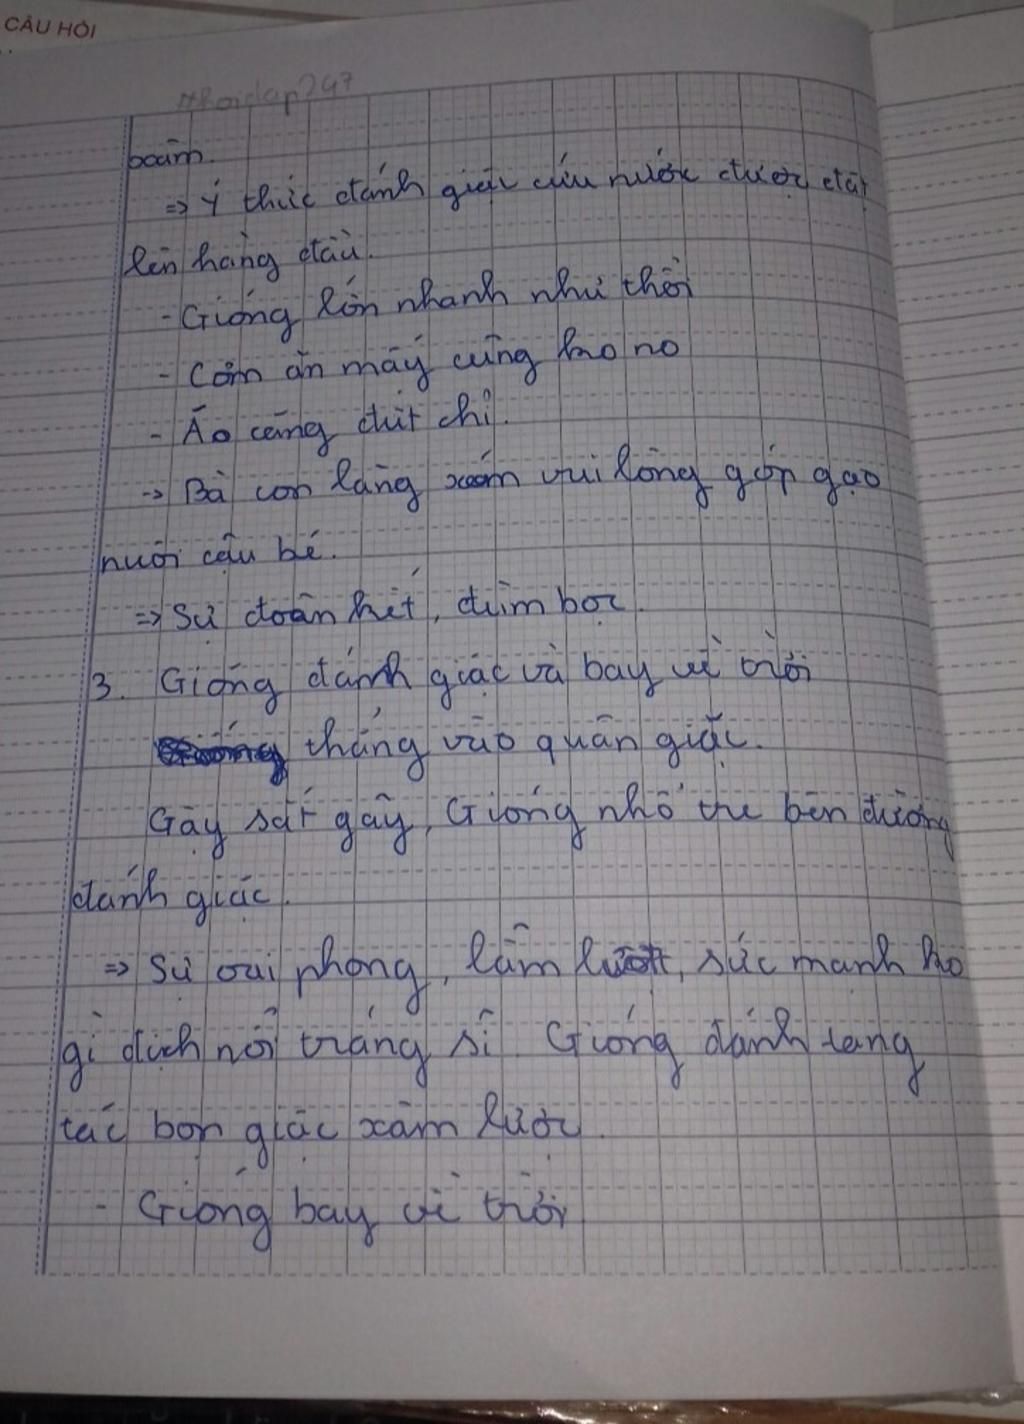 CÂU HỎI
#hoidap247
boăm.
=> Ý thức đánh giặc cứu nước được đặt
lên hàng đầu.
- Gióng lớn nhanh như thổi
- Cơm ăn mấy cũng ko no
- Áo căng đứt chỉ.
-> Bà con làng xóm vui lòng góp gạo
nuôi cậu bé.
=> Sự đoàn kết, đùm bọc.
3. Gióng đánh giặc và bay về trời
thẳng vào quân giặc.
Gậy sắt gãy, Gióng nhổ tre bên đường
đánh giặc.
=> Sự oai phong, lẫm liệt, sức mạnh ko
gì địch nổi tráng sĩ Gióng đánh tang
tác bọn giặc xâm lược.
- Gióng bay về trời